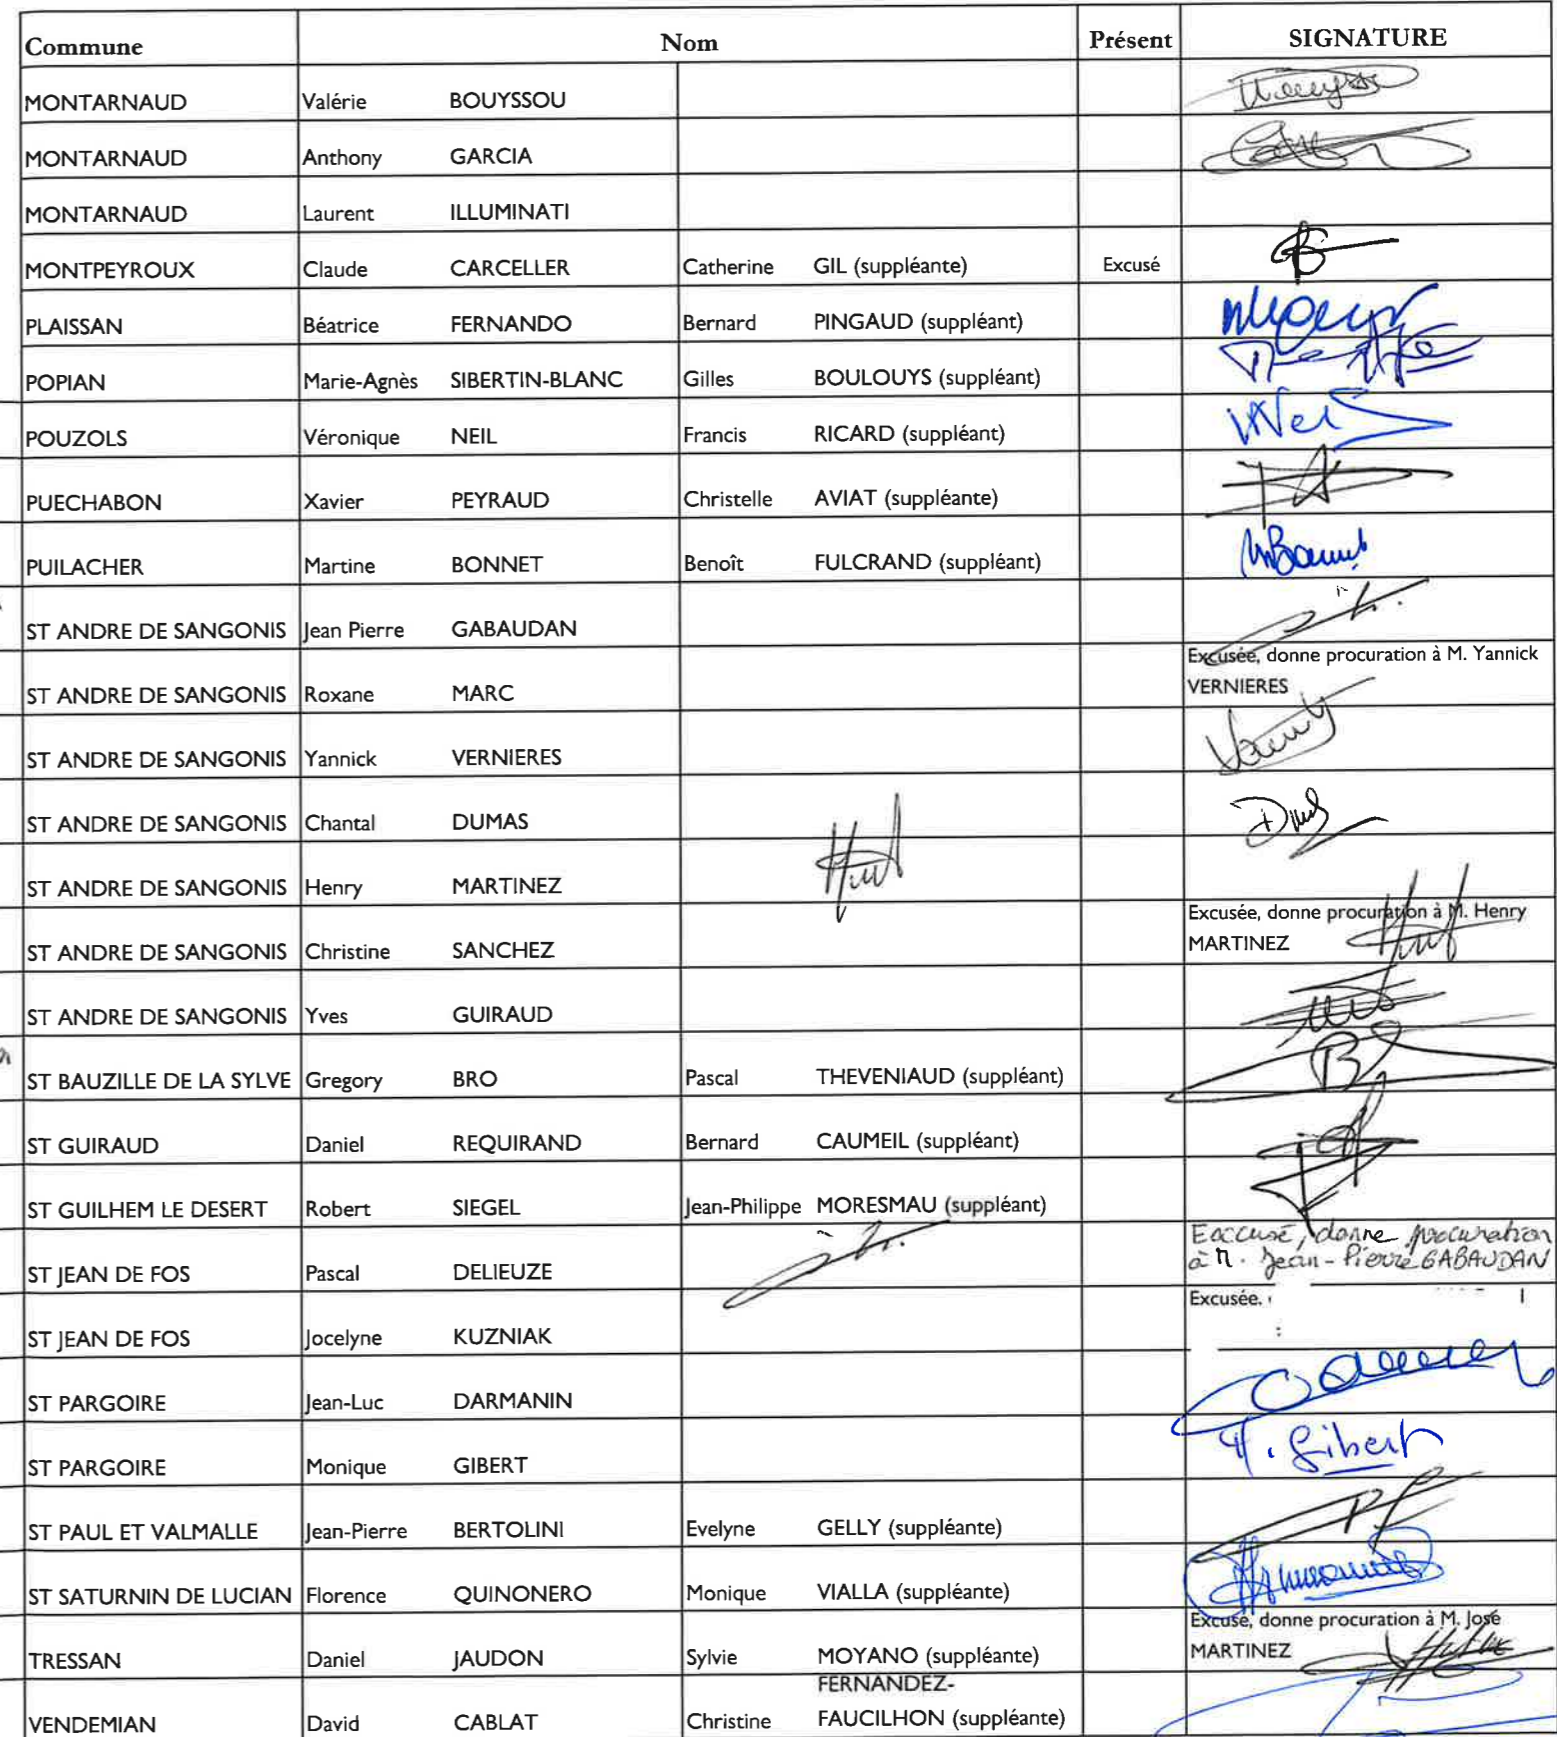 Commune Nom Présent SIGNATURE
MONTARNAUD Valérie BOUYSSOU
MONTARNAUD Anthony GARCIA
MONTARNAUD Laurent ILLUMINATI
MONTPEYROUX Claude CARCELLER Catherine GIL (suppléante) Excusé
PLAISSAN Béatrice FERNANDO Bernard PINGAUD (suppléant)
POPIAN Marie-Agnès SIBERTIN-BLANC Gilles BOULOUYS (suppléant)
POUZOLS Véronique NEIL Francis RICARD (suppléant)
PUECHABON Xavier PEYRAUD Christelle AVIAT (suppléante)
PUILACHER Martine BONNET Benoît FULCRAND (suppléant)
ST ANDRE DE SANGONIS Jean Pierre GABAUDAN
Excusée, donne procuration à M. Yannick
ST ANDRE DE SANGONIS Roxane MARC VERNIERES
ST ANDRE DE SANGONIS Yannick VERNIERES
ST ANDRE DE SANGONIS Chantal DUMAS
ST ANDRE DE SANGONIS Henry MARTINEZ
Excusée, donne procuration à M. Henry
ST ANDRE DE SANGONIS Christine SANCHEZ MARTINEZ
ST ANDRE DE SANGONIS Yves GUIRAUD
ST BAUZILLE DE LA SYLVE Gregory BRO Pascal THEVENIAUD (suppléant)
ST GUIRAUD Daniel REQUIRAND Bernard CAUMEIL (suppléant)
ST GUILHEM LE DESERT Robert SIEGEL Jean-Philippe MORESMAU (suppléant)
Excusé, donne procuration
ST JEAN DE FOS Pascal DELIEUZE à M. Jean-Pierre GABAUDAN
Excusée.
ST JEAN DE FOS Jocelyne KUZNIAK
ST PARGOIRE Jean-Luc DARMANIN
ST PARGOIRE Monique GIBERT M. Gibert
ST PAUL ET VALMALLE Jean-Pierre BERTOLINI Evelyne GELLY (suppléante)
ST SATURNIN DE LUCIAN Florence QUINONERO Monique VIALLA (suppléante)
Excusé, donne procuration à M. José
TRESSAN Daniel JAUDON Sylvie MOYANO (suppléante) MARTINEZ
FERNANDEZ-
VENDEMIAN David CABLAT Christine FAUCILHON (suppléante)